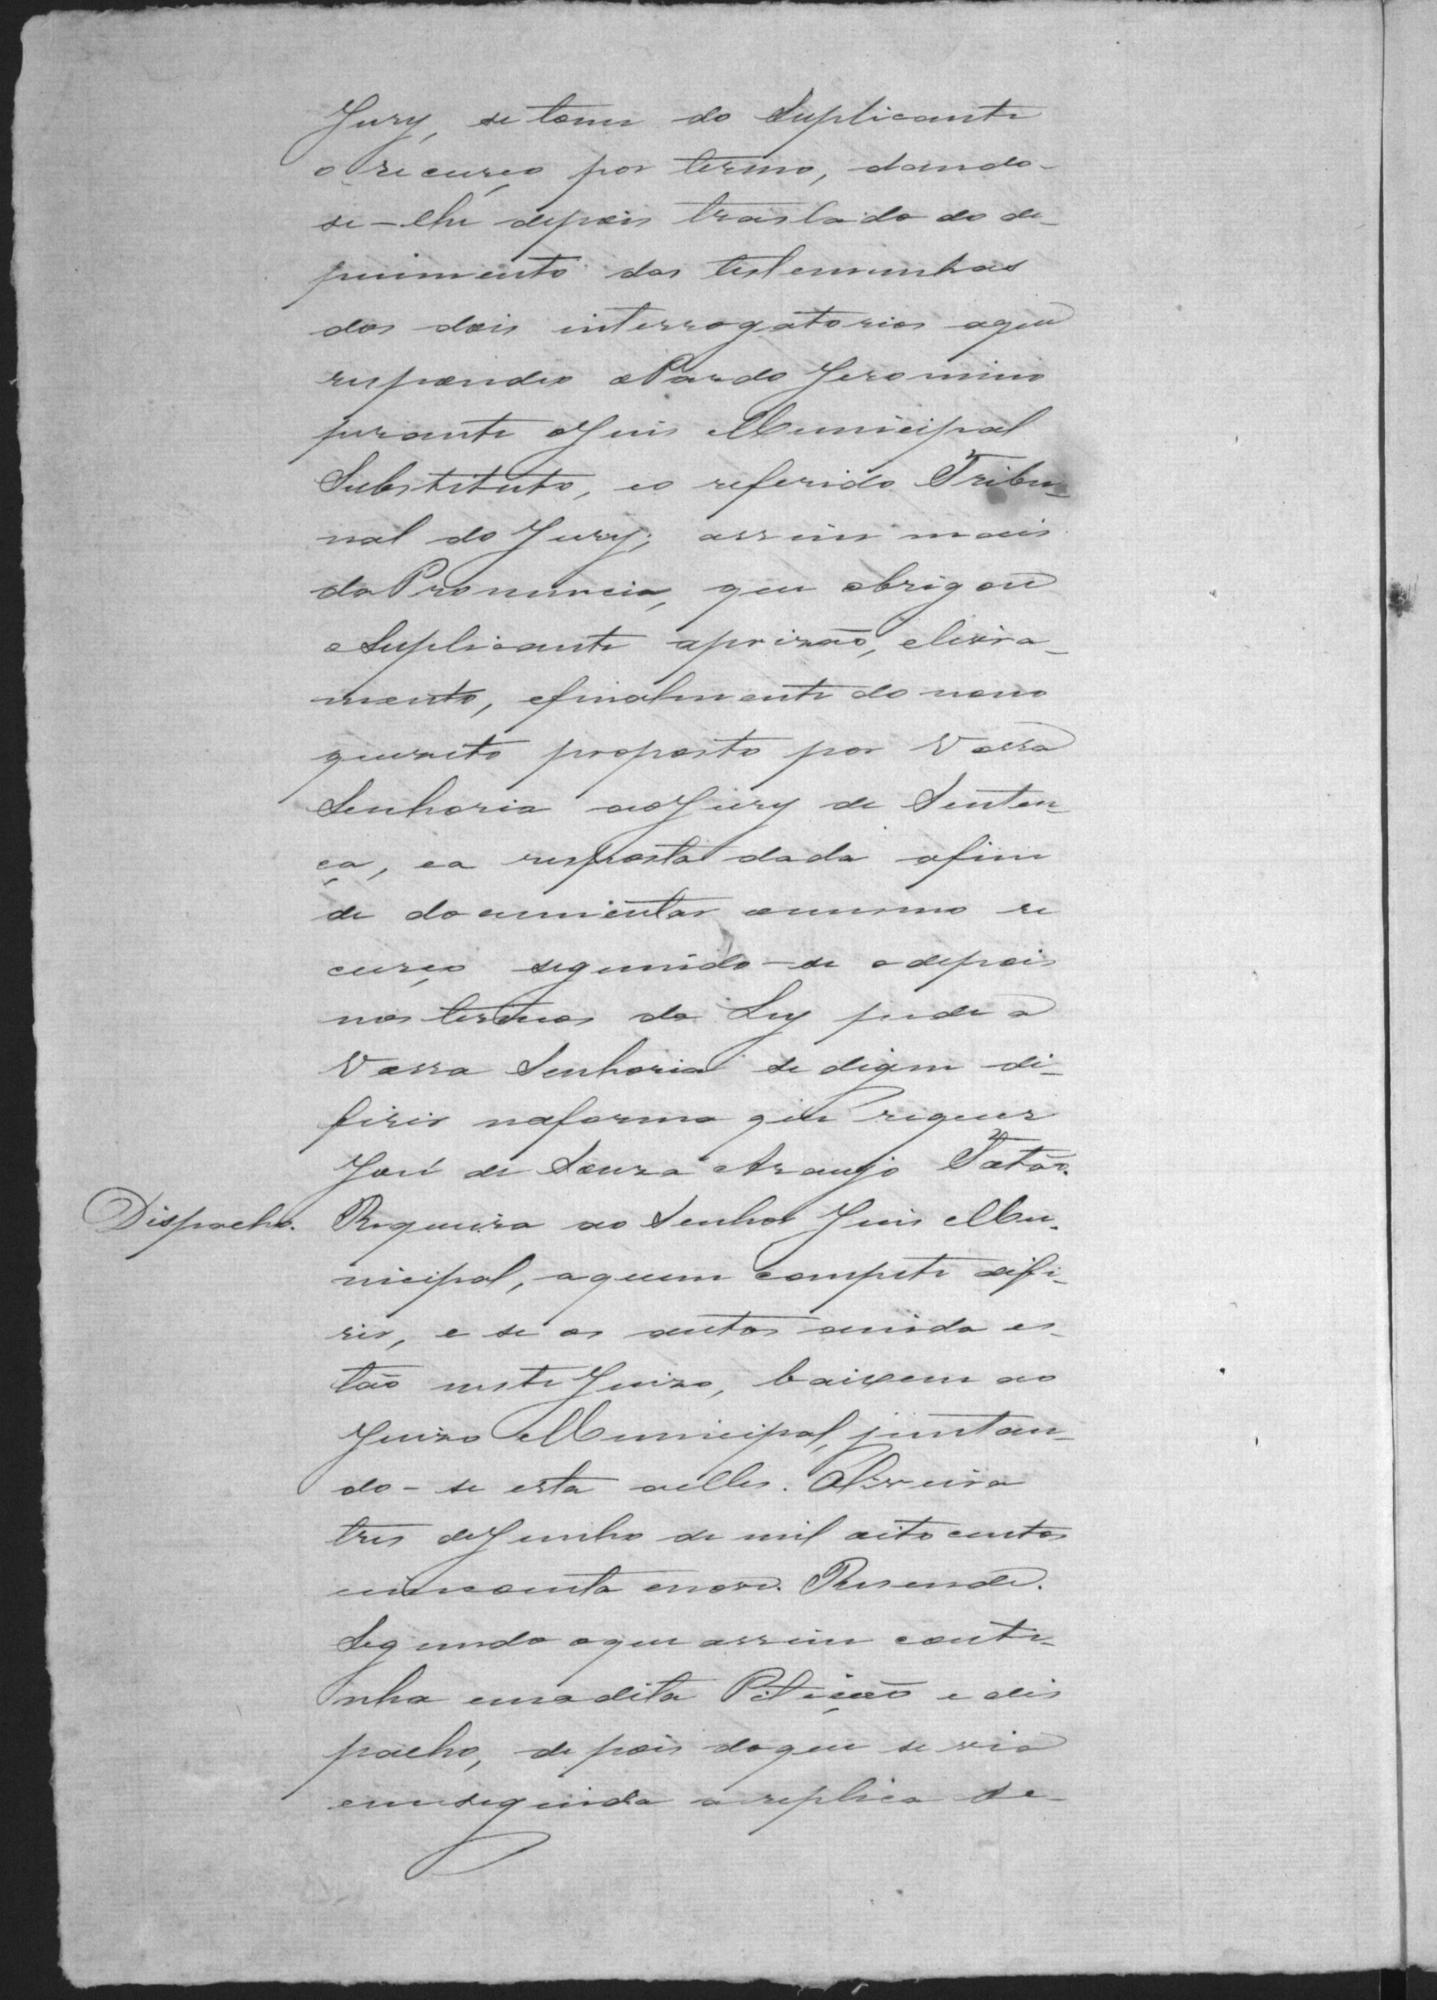 Jury, se tome do Suplicante
o recurço por termo, dando-
se-lhe depois traslado do de-
puimento das testemunhas
dos dois interrogatorios aque
respondeo o Pardo Jeronimo
perante o Juis Municipal
Substituto, eo referido Tribu-
nal do Jury; assim mais
da Pronuncia, que obrigou
o Suplicante aprizão, elivra-
mento, efinalmente do nono
quezito proposto por Vossa
Senhoria ao Jury de Senten-
ça, ea resposta dada afim
de documentar omesmo re
curço seguindo-se odepois
nos termos da Ley pede a
Vossa Senhoria se digne di-
firir naforma que requer
José de Souza Araujo Tatão.
Dispacho. Requeira ao Senhor Juis Mu-
nicipal, aquem compete difi-
rir, e se os autos ainda es-
tão neste Juizo, baixem ao
Juizo Municipal, juntan-
do-se esta aelles. Oliveira
tres de Junho de mil oito centos
cincoenta enove. Resende.
Segundo oque assim conti-
nha emadita Petição e dis
pacho, depois doque se via
emseguida areplica se-